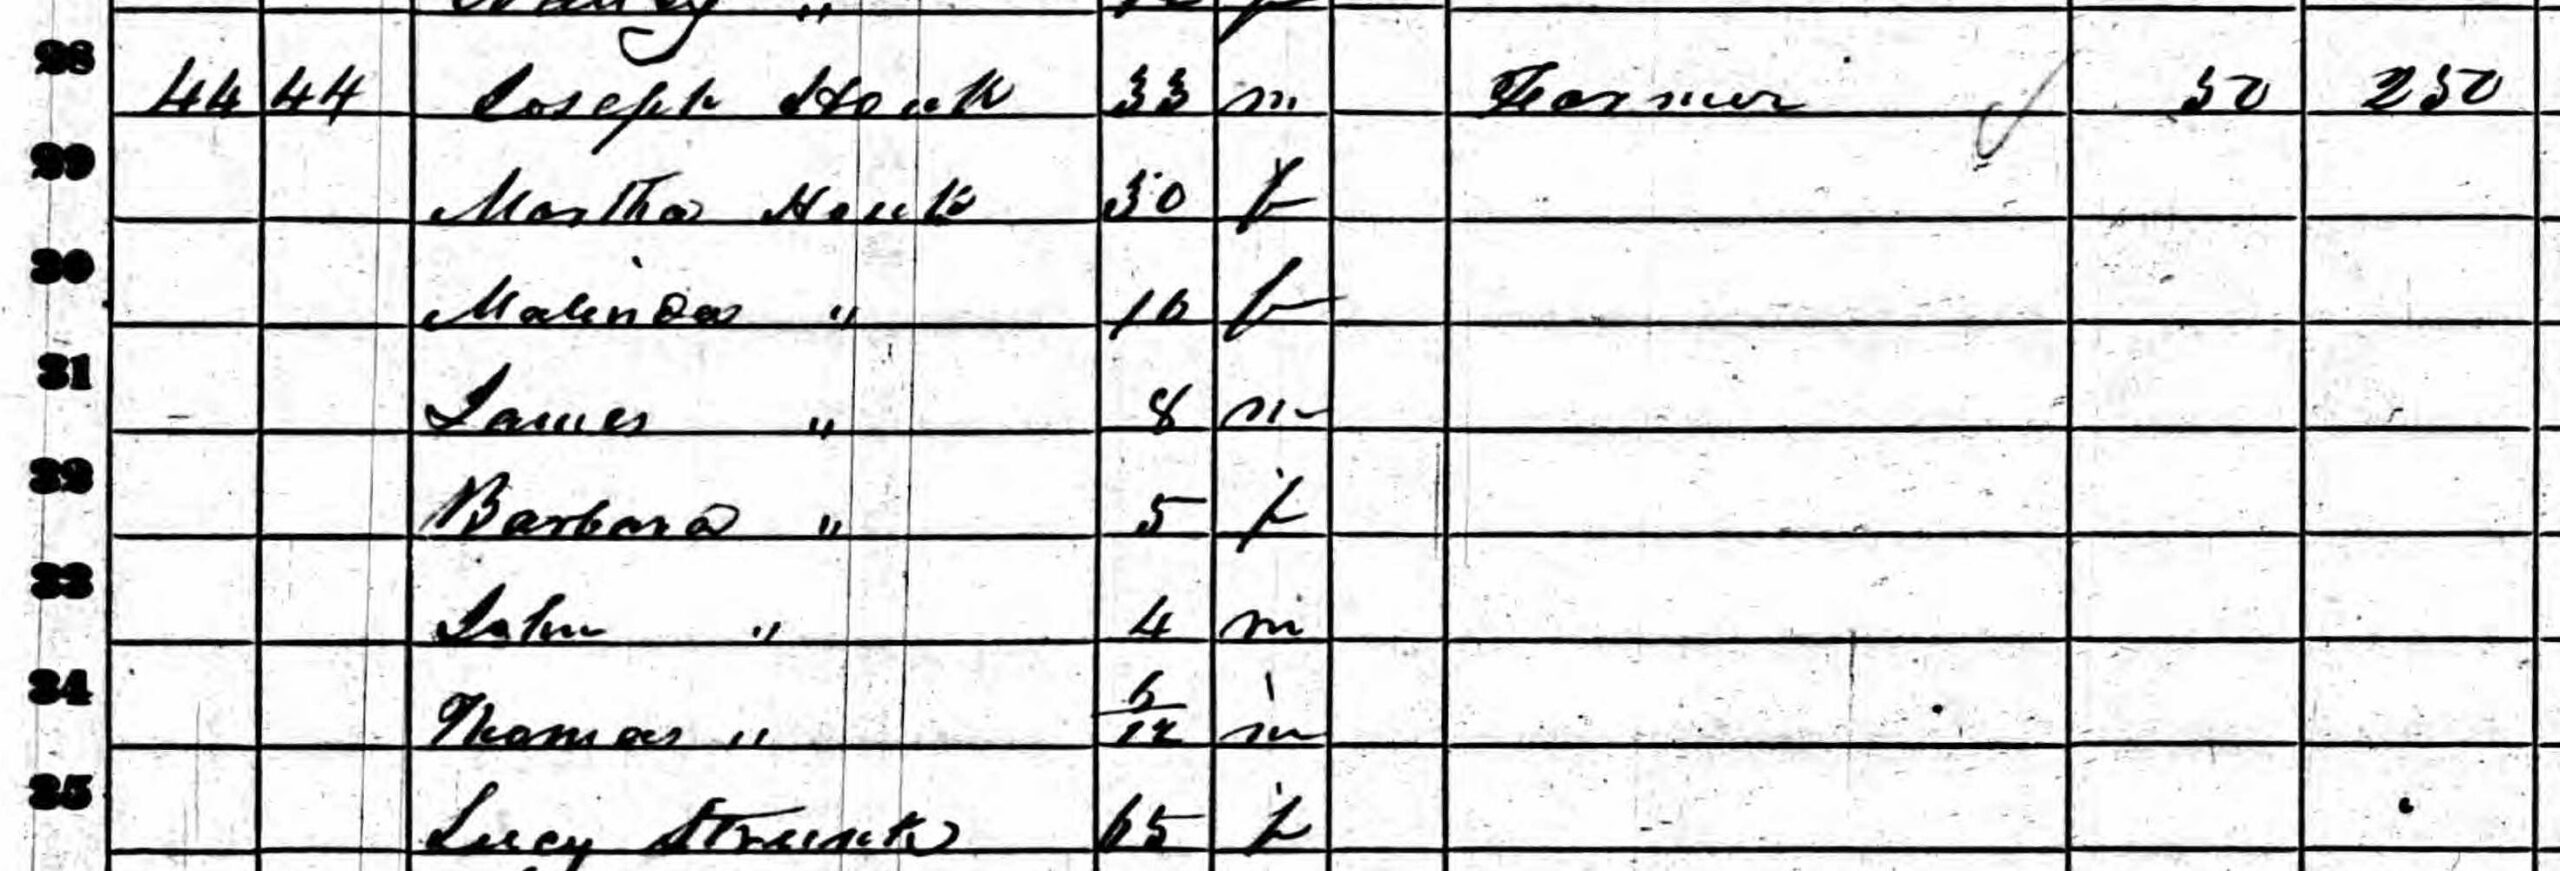 Nancy "
28 44 44 Joseph Houk 33 m Farmer 50 250
29 Martha Houk 30 f
30 Malinda " 10 f
31 James " 8 m
32 Barbara " 5 f
33 John " 4 m
34 Thomas " 6/12 m
35 Lucy Strunk 65 f